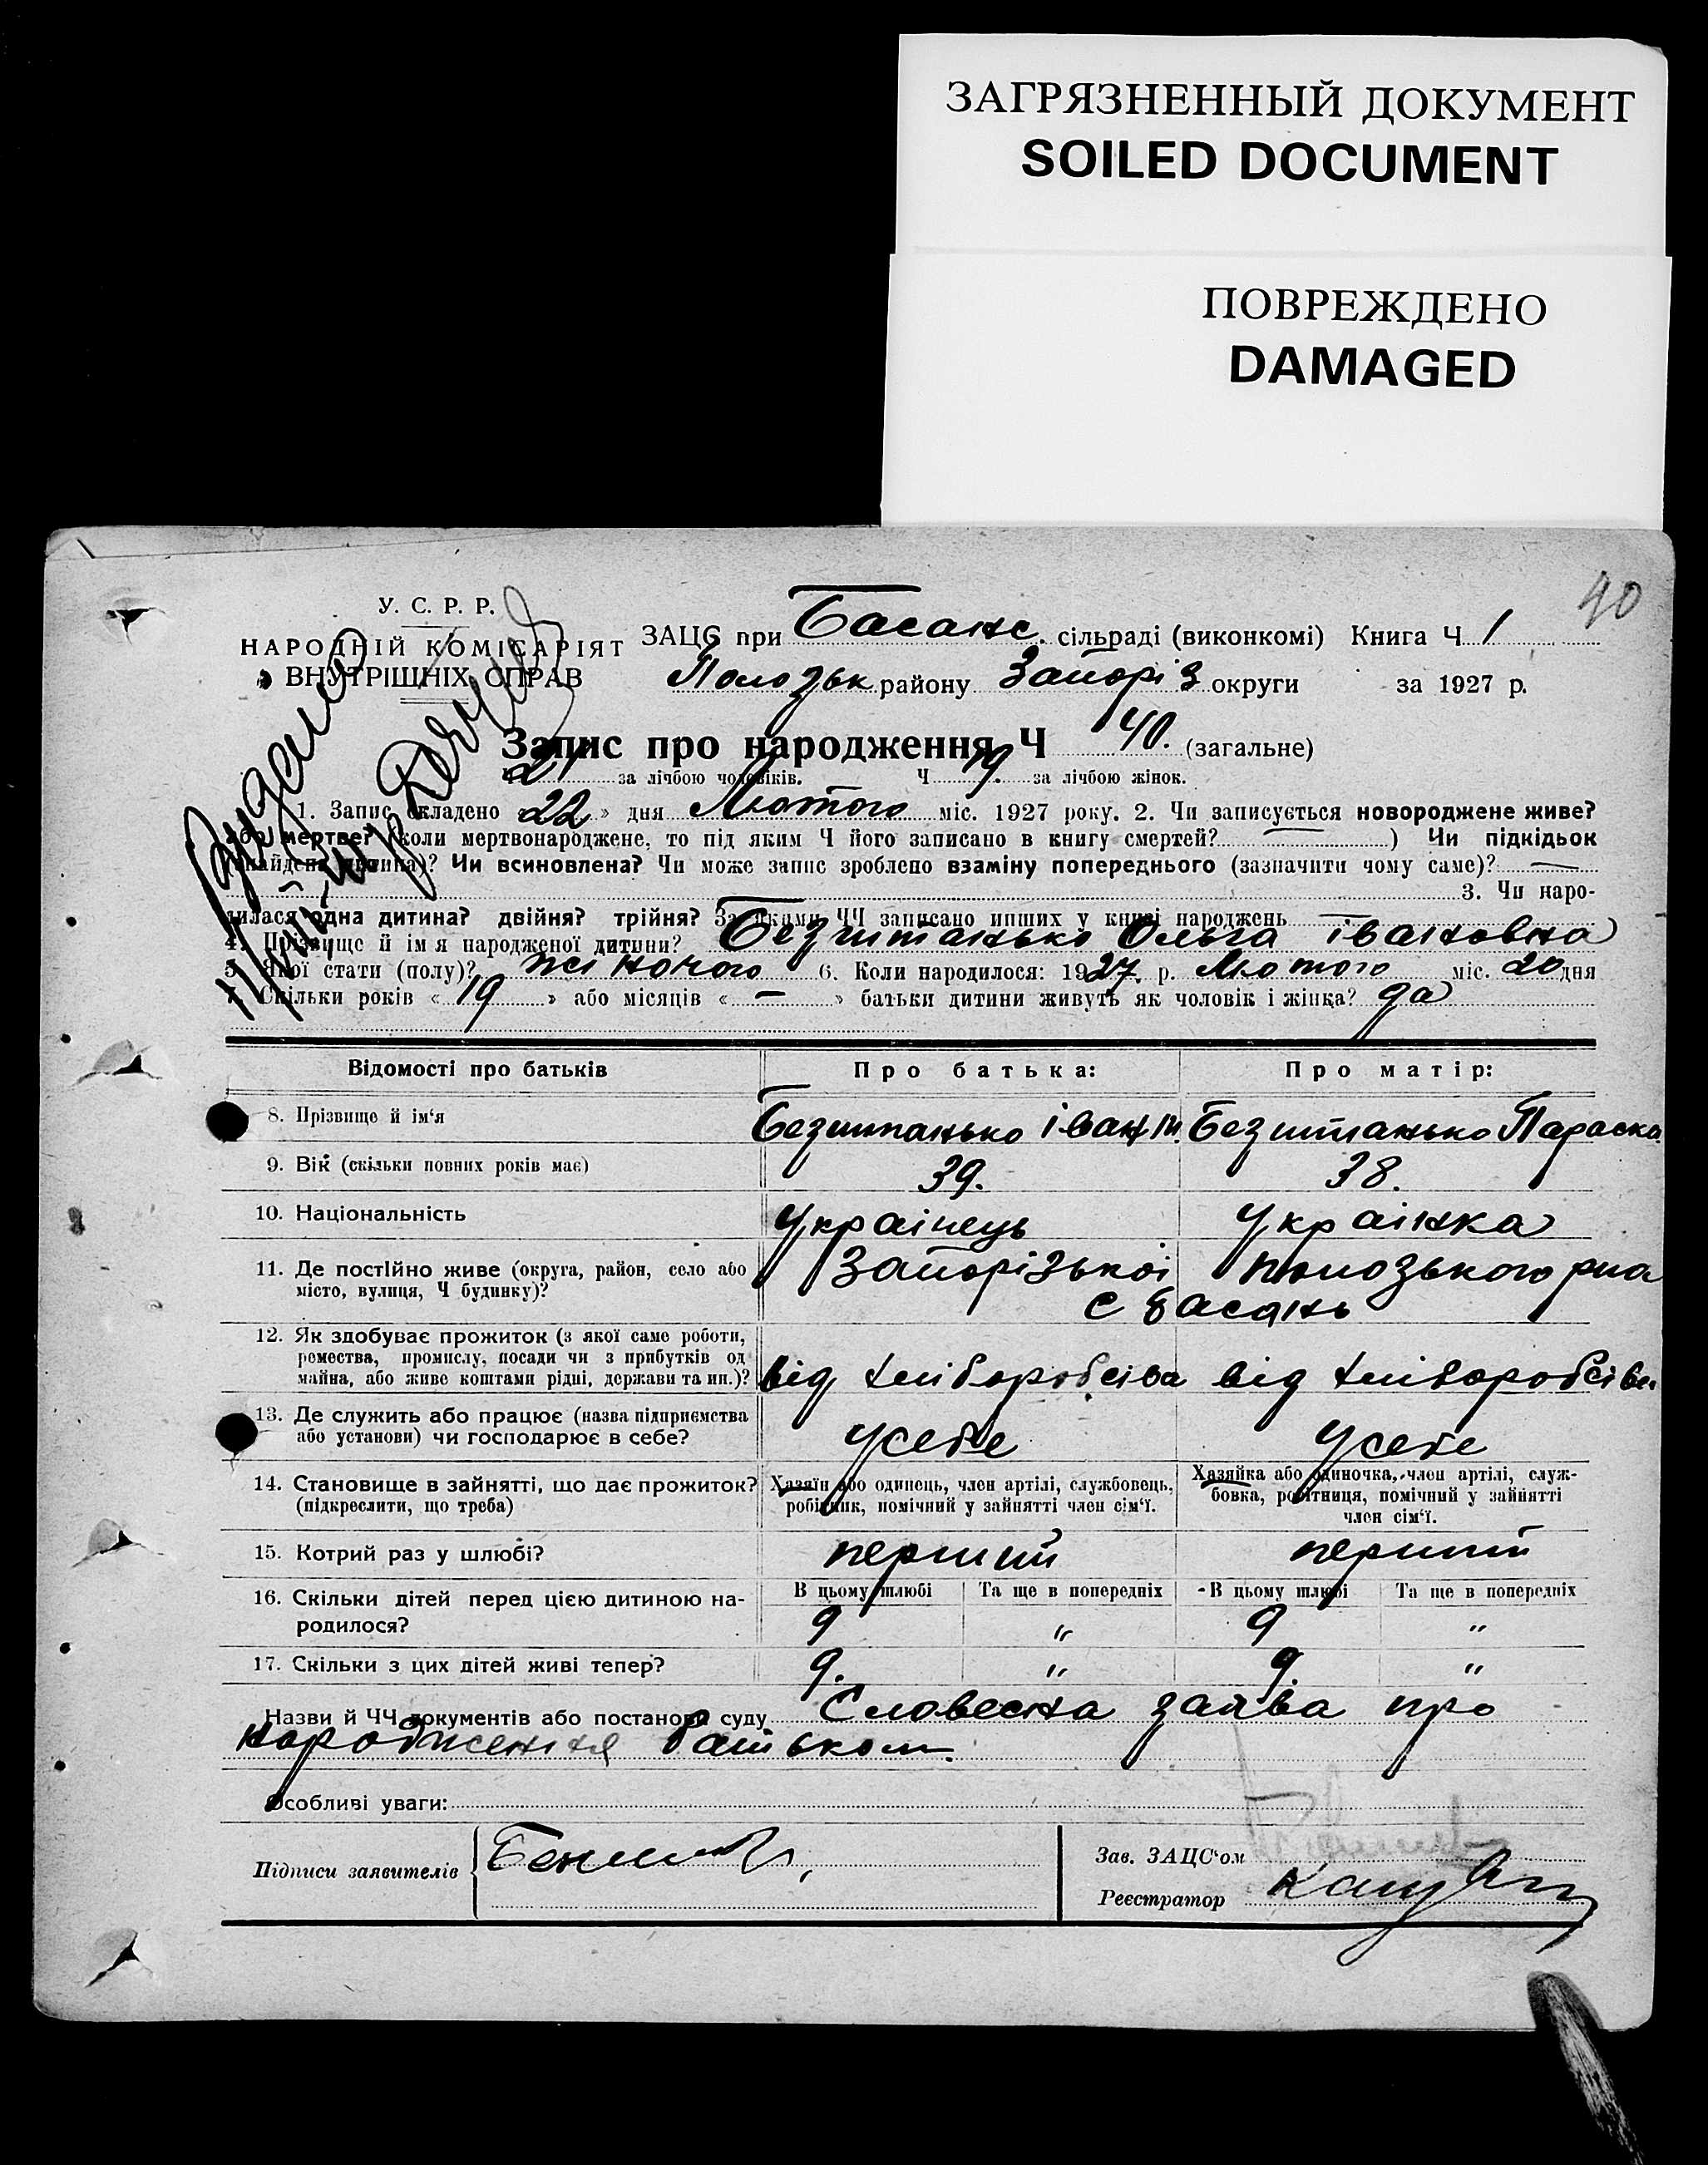 ЗАГРЯЗНЕННЫЙ ДОКУМЕНТ
SOILED DOCUMENT
ПОВРЕЖДЕНО
DAMAGED
40
У. С. Р. Р.
НАРОДНІЙ КОМІСАРІЯТ
ВНУТРІШНІХ СПРАВ
ЗАЦС при Басанс. сільраді (виконкомі) Книга Ч 1
Полозьк району Запоріз округи за 1927 р.
Видано
Запис про народження Ч 40. (загальне)
21 за лічбою чоловіків. Ч 19. за лічбою жінок.
1. Запис складено «22» дня Лютого міс. 1927 року. 2. Чи записується новороджене живе?
або мертве? (коли мертвонароджене, то під яким Ч його записано в книгу смертей? — ) Чи підкідьок
(знайдена дитина)? Чи всиновлена? Чи може запис зроблено взаміну попереднього (зазначити чому саме)? —
3. Чи наро-
дилася одна дитина? двійня? трійня? За якими ЧЧ записано инших у книзі народжень —
4. Прізвище й ім я народженої дитини? Безштанько Ольга Івановна
5. Якої стати (полу)? жіночого 6. Коли народилося: 1927 р. Лютого міс. 20 дня
7. Скільки років «19» або місяців «—» батьки дитини живуть як чоловік і жінка? да
Відомості про батьків Про батька: Про матір:
8. Прізвище й ім‘я Безштанько Іван Безштанько Параска
9. Вік (скільки повних років має) 39. 38.
10. Національність Українець Українка
11. Де постійно живе (округа, район, село або місто, вулиця, Ч будинку)? Запорізької Полозького рна
с Басань
12. Як здобуває прожиток (з якої саме роботи,
ремества, промислу, посади чи з прибутків од
майна, або живе коштами рідні, держави та ин.)? від хліборобсіва від хліборобсіва
13. Де служить або працює (назва підприємства
або установи) чи господарює в себе? усебе усебе
14. Становище в зайнятті, що дає прожиток?
(підкреслити, що треба)
Хазяїн або одинець, член артілі, службовець,
робітник, помічний у зайнятті член сім‘ї.
Хазяйка або одиночка, член артілі, служ-
бовка, робітниця, помічний у зайнятті
член сім‘ї.
15. Котрий раз у шлюбі? перший перший
16. Скільки дітей перед цією дитиною на-
родилося?
В цьому шлюбі Та ще в попередніх В цьому шлюбі Та ще в попередніх
9 „ 9 „
17. Скільки з цих дітей живі тепер? 9. „ 9 „
Назви й ЧЧ документів або постанови суду Словесна заява про
народження батьком.
Особливі уваги:
Підписи заявителів
Зав. ЗАЦС‘ом
Реєстратор